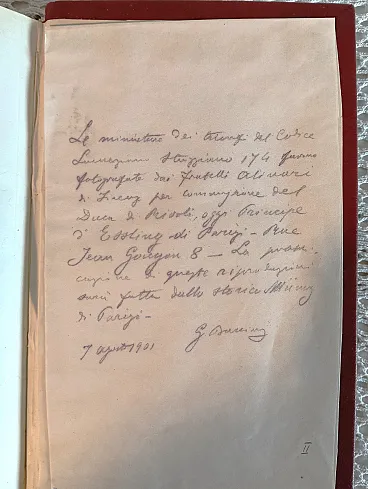 Le miniature dei trionfi del Codice
Strozziano 174 furono
fotografate dai fratelli Alinari
di Firenze per commissione del
Duca di Rivoli, oggi Principe
d'Essling di Parigi - Rue
Jean Goujon 8 - La
di queste riproduzioni
sarà fatta dallo storico Müntz
di Parigi -
7 agosto 1901
G.
II